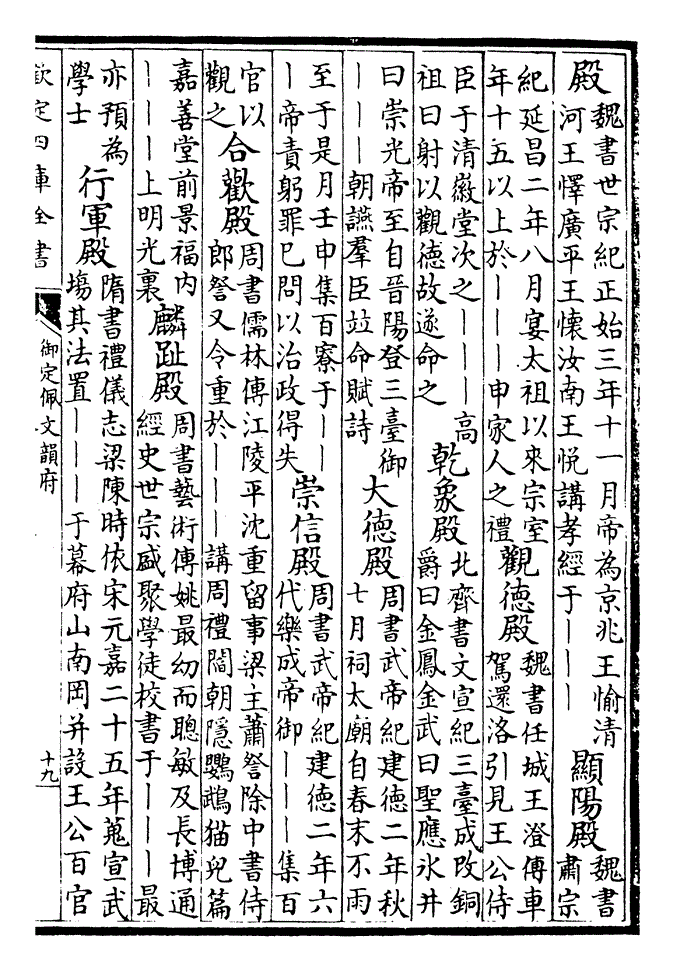 殿
魏書世宗紀正始三年十一月帝為京兆王愉清
河王懌廣平王懷汝南王悅講孝經于丨丨丨
顯陽殿
魏書
肅宗
紀延昌二年八月宴太祖以來宗室
年十五以上於丨丨丨申家人之禮
觀德殿
魏書任城王澄傳車
駕還洛引見王公侍
臣于清徽堂次之丨丨丨高
祖曰射以觀德故遂命之
乾象殿
北齊書文宣紀三臺成改銅
爵曰金鳳金武曰聖應氷井
曰崇光帝至自晉陽登三臺御
丨丨丨朝讌羣臣竝命賦詩
大德殿
周書武帝紀建德二年秋
七月祠太廟自春末不雨
至于是月壬申集百寮于丨丨
丨帝責躬罪巳問以治政得失
崇信殿
周書武帝紀建德二年六
代樂成帝御丨丨丨集百
官以
觀之
合歡殿
周書儒林傳江陵平沈重留事梁主蕭詧除中書侍
郎詧又令重於丨丨丨講周禮閻朝隱鸚鵡猫兒篇
嘉善堂前景福内
丨丨丨上明光裏
麟趾殿
周書藝術傳姚最幼而聰敏及長博通
經史世宗盛聚學徒校書于丨丨丨最
亦預為
學士
行軍殿
隋書禮儀志梁陳時依宋元嘉二十五年蒐宣武
塲其法置丨丨丨于幕府山南岡并設王公百官
欽定四庫全書
御定佩文韻府
十九